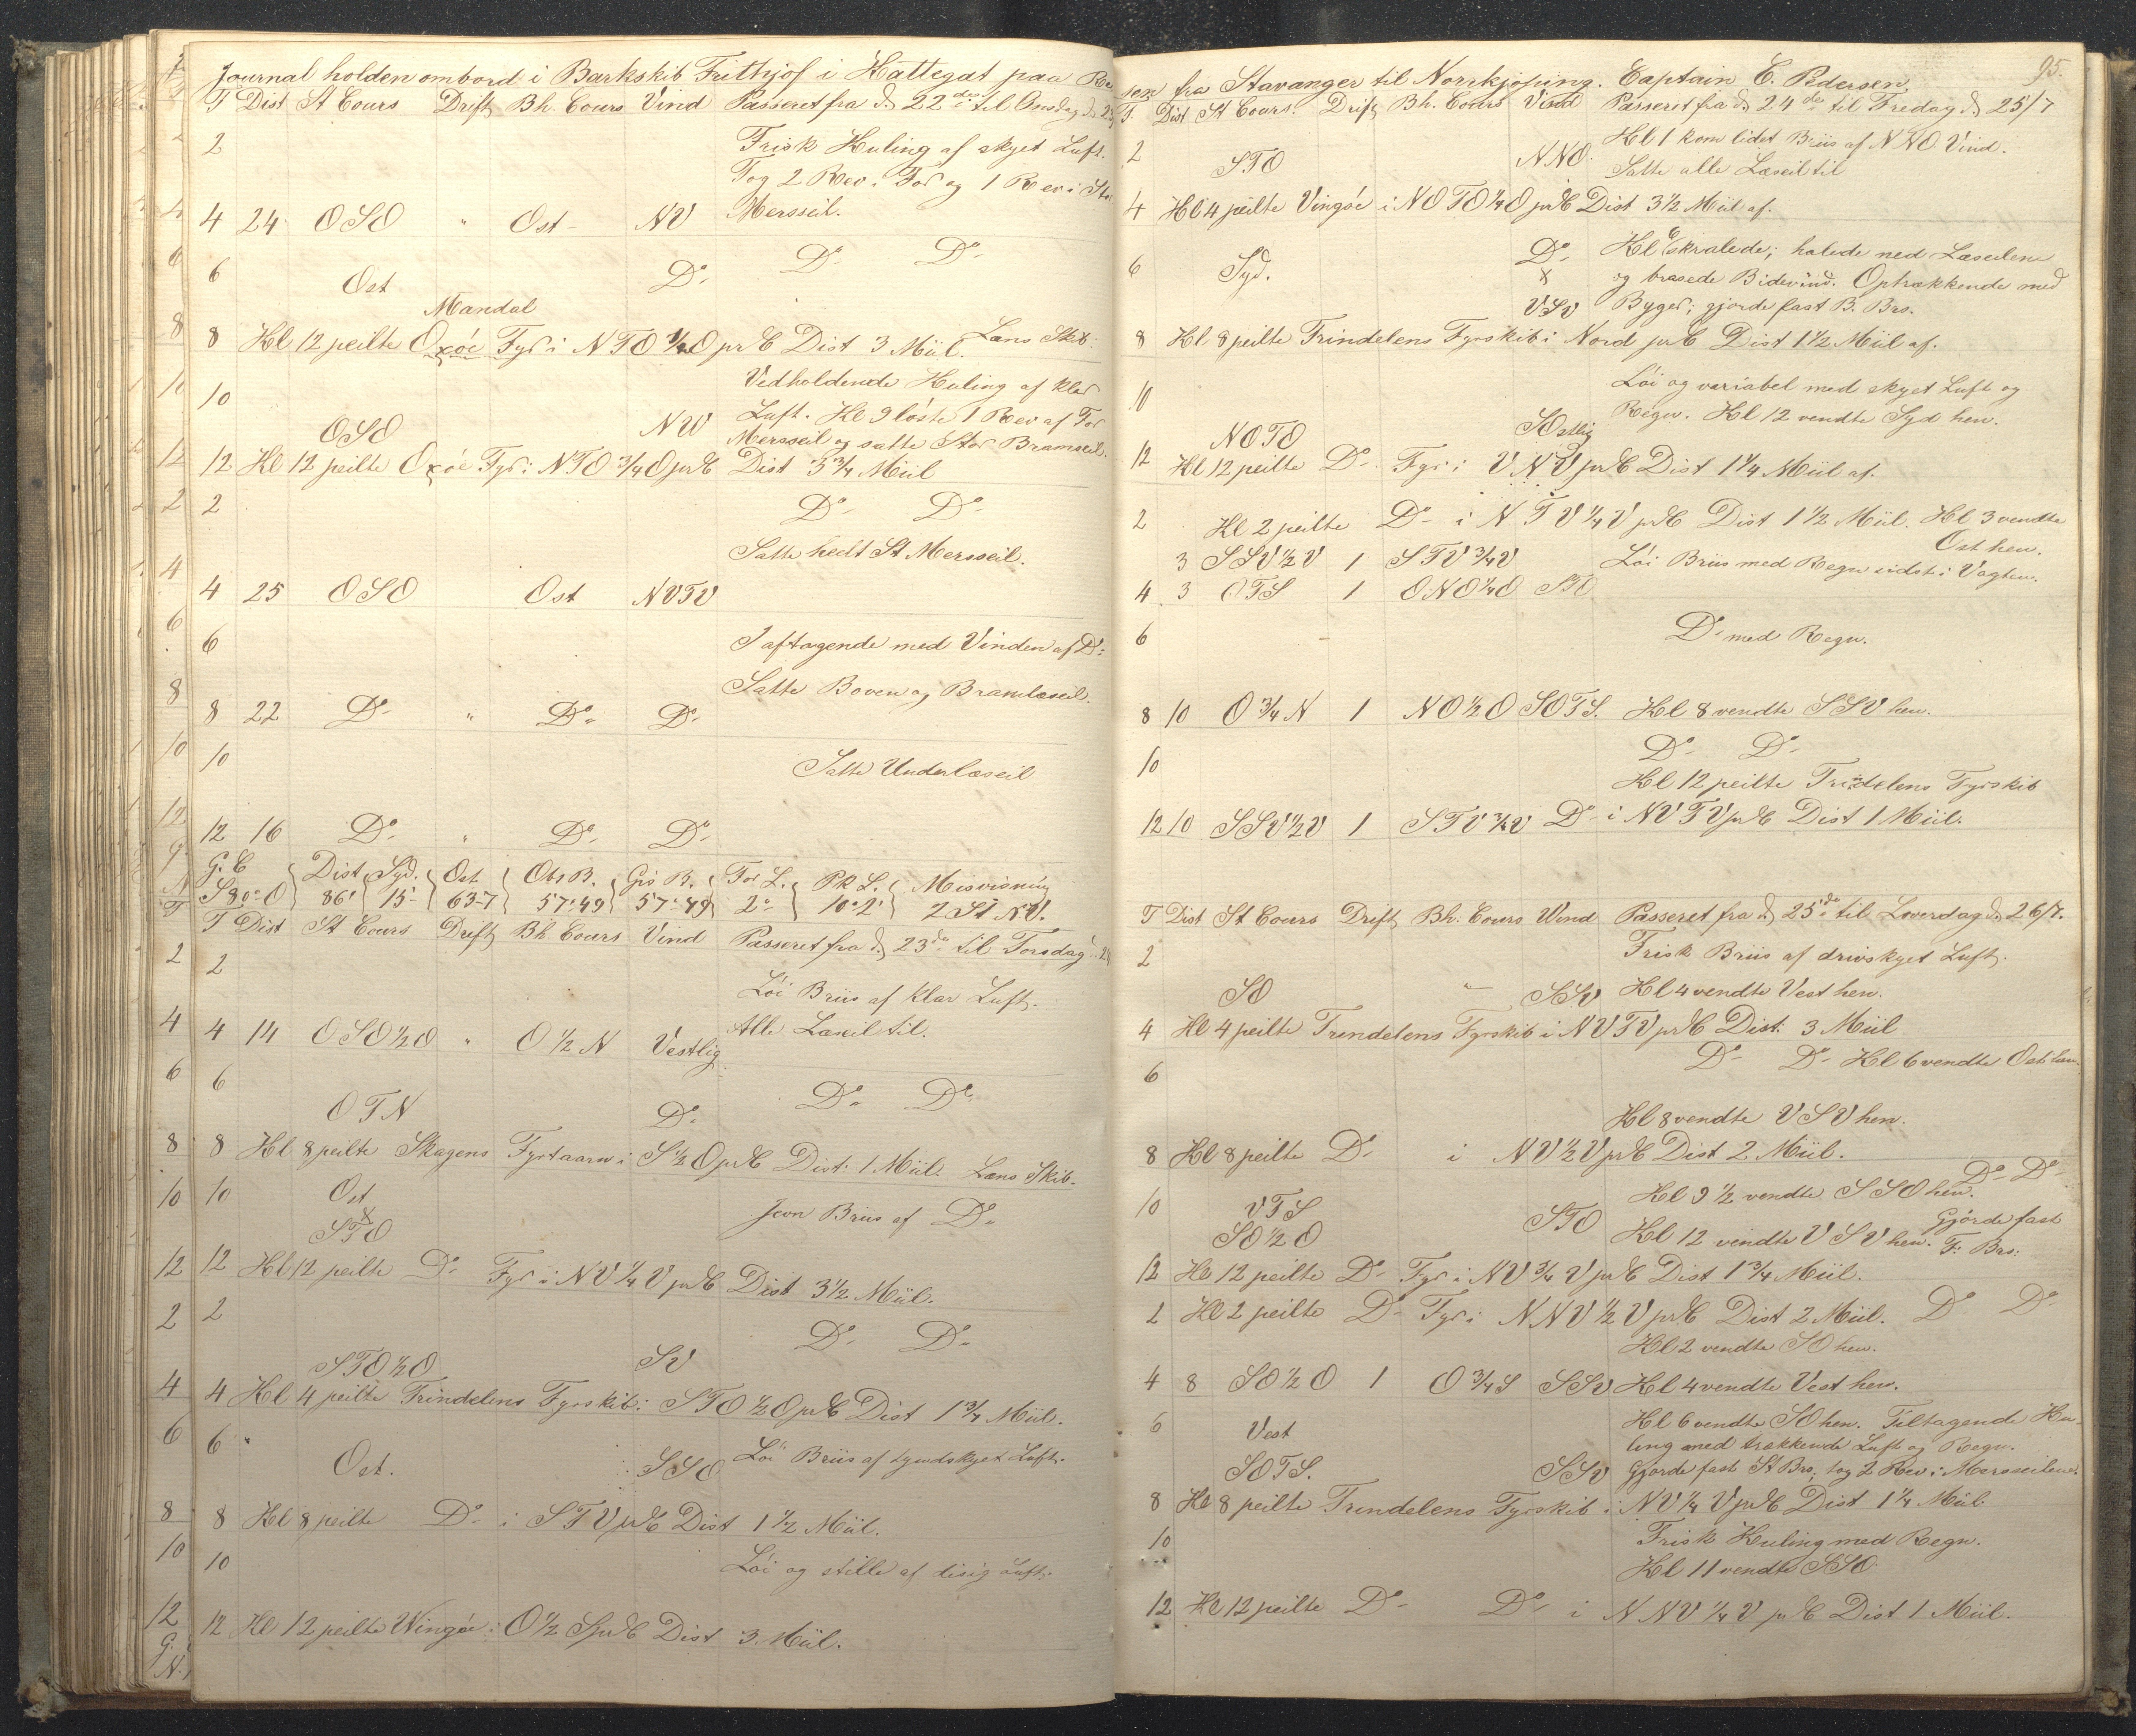 Journal holden ombord i Barkskib Frithjof i Kattegat paa Rei
T Dist St Cours Drift Bh. Cours Vind Passeret fra d 22 des til Onsdag d 23/7
2 Frisk Kuling af skyet Luft.
Tog 2 Rev i For og 1 Rev i Stor
4 24 OSO " Ost - NV Mersseil.
6 Ost Do Do Do
Mandal
8 Kl 12 peilte Oxöe Fyr i NTO 3/4 O pr C Dist 3 Miil. Læns Skib.
10 Vedholdende Kuling af klar
Luft. Kl 9 löste 1 Rev af For
OSO NW Mersseil og satte Stor Bramseil.
12 Kl 12 peilte Oxöe Fyr i NTO 3/4 O pr C Dist 3 3/4 Miil
2 Do Do
Satte hedt St Mersseil.
4 25 OSO Ost NVTV
6 I aftagende med Vinden af Do
Satte Boven og Bramlæseil.
8 22 Do " Do Do
10 Satte Underlæseil
12 16 Do " Do Do
G. C Dist Syd. Ost Obs B. Gis B. For L. Pk L. Misvisning
S 80° O 86' 15' 63-7 57°49 57°49 2° 10°2' 2 St NV.
T Dist St Cours Drift Bh. Cours Vind Passeret fra d 23 de til Torsdag 24
2 Löi Briis af klar Luft.
4 14 OSO 1/2 O " O 1/2 N Vestlig Alle Læseil til.
6 OTN Do Do Do
8 Kl 8 peilte Skagens Fyrtaarn i S 1/2 O pr C Dist: 1 Miil. Læns Skib.
10 Ost Jevn Briis af Do
STO
12 Kl 12 peilte Do Fyr i NV 1/4 V pr C Dist 3 1/2 Miil.
2 Do Do
STO 1/2 O SV
4 Kl 4 peilte Trindelens Fyrskib i STO 1/2 O pr C Dist 1 3/4 Miil.
6 " Ost. SSO Löi Briis af tyndskyet Luft.
8 Kl 8 peilte Do i STV pr C Dist 1 1/2 Miil.
10 Löi og stille af disig Luft.
12 Kl 12 peilte Wingöe i O 1/2 S pr C Dist 3 Miil.
95.
sen fra Stavanger til Norrkjöping. Captain C. Pedersen
T. Dist St Cours. Drift Bh. Cours Vind Passeret fra d 24 des til Fredag d 25/7
2 STO NNO. Kl 1 kom lidet Briis af NNO Vind.
Satte alle Læseil til
4 Kl 4 peilte Vingöe i NOTO 1/4 O pr C Dist 3 1/2 Miil af.
6 Syd. Do Kl 6 skralede; halede ned Læseilene
x og brasede Bidevind. Optrækkende med
VSV Byger; gjorde fast B. Brs.
8 Kl 8 peilte Trindelens Fyrskib i Nord pr C Dist 1 1/2 Miil af.
10 Löi og variabel med skyet Luft og
NOTO SOstlig Regn. Kl 12 vendte Syd hen.
12 Kl 12 peilte Do Fyr i VNV pr C Dist 1 1/4 Miil af.
2 Kl 2 peilte Do i NTV 1/4 V pr C Dist 1 1/2 Miil. Kl 3 vendte
Ost hen.
3 SSV 1/2 V 1 STV 3/4 V Löi Briis med Regn sidst i Vagten.
4 3 OTS 1 ONO 1/4 O STO
6 Do med Regn.
8 10 O 3/4 N 1 NO 1/2 O SOTS. Kl 8 vendte SSV hen.
10 Do Do
Kl 12 peilte Trindelens Fyrskib
12 10 SSV 1/2 V 1 STV 3/4 V Do i NVTV pr C Dist 1 Miil.
T Dist St Cours Drift Bh. Cours Wind Passeret fra d 25 de til Löverdag d 26/7.
2 Frisk Briis af drivskyet Luft.
SO " SSV Kl 4 vendte Vest hen.
4 Kl 4 peilte Trindelens Fyrskib i NVTV pr C Dist: 3 Miil
6 Do Do Kl 6 vendte Ost hen.
Kl 8 vendte VSV hen.
8 Kl 8 peilte Do i NV 1/2 V pr C Dist 2 Miil.
Do Do
10 VTS Kl 9 1/2 vendte SSO hen.
SO 1/2 O STO Kl 12 vendte VSV hen. Gjörde fast
F. Brs:
12 Kl 12 peilte Do Fyr i NV 3/4 V pr C Dist 1 3/4 Miil.
2 Kl 2 peilte Do Fyr i NNV 1/2 V pr C Dist 2 Miil. Do Do
Kl 2 vendte SO hen.
4 8 SO 1/2 O 1 O 3/4 S SSV Kl 4 vendte Vest hen.
6 Vest Kl 6 vendte SO hen. Tiltagende Ku-
ling med trækkende Luft og Regn.
SOTS. SSV Gjorde fast St Brs; tog 2 Rev i Mersseilene.
8 Kl 8 peilte Trindelens Fyrskib i NV 1/4 V pr C Dist 1 1/4 Miil
10 Frisk Kuling med Regn.
Kl 11 vendte SSO
12 Kl 12 peilte Do Do i NNV 1/4 V pr C Dist 1 Miil.